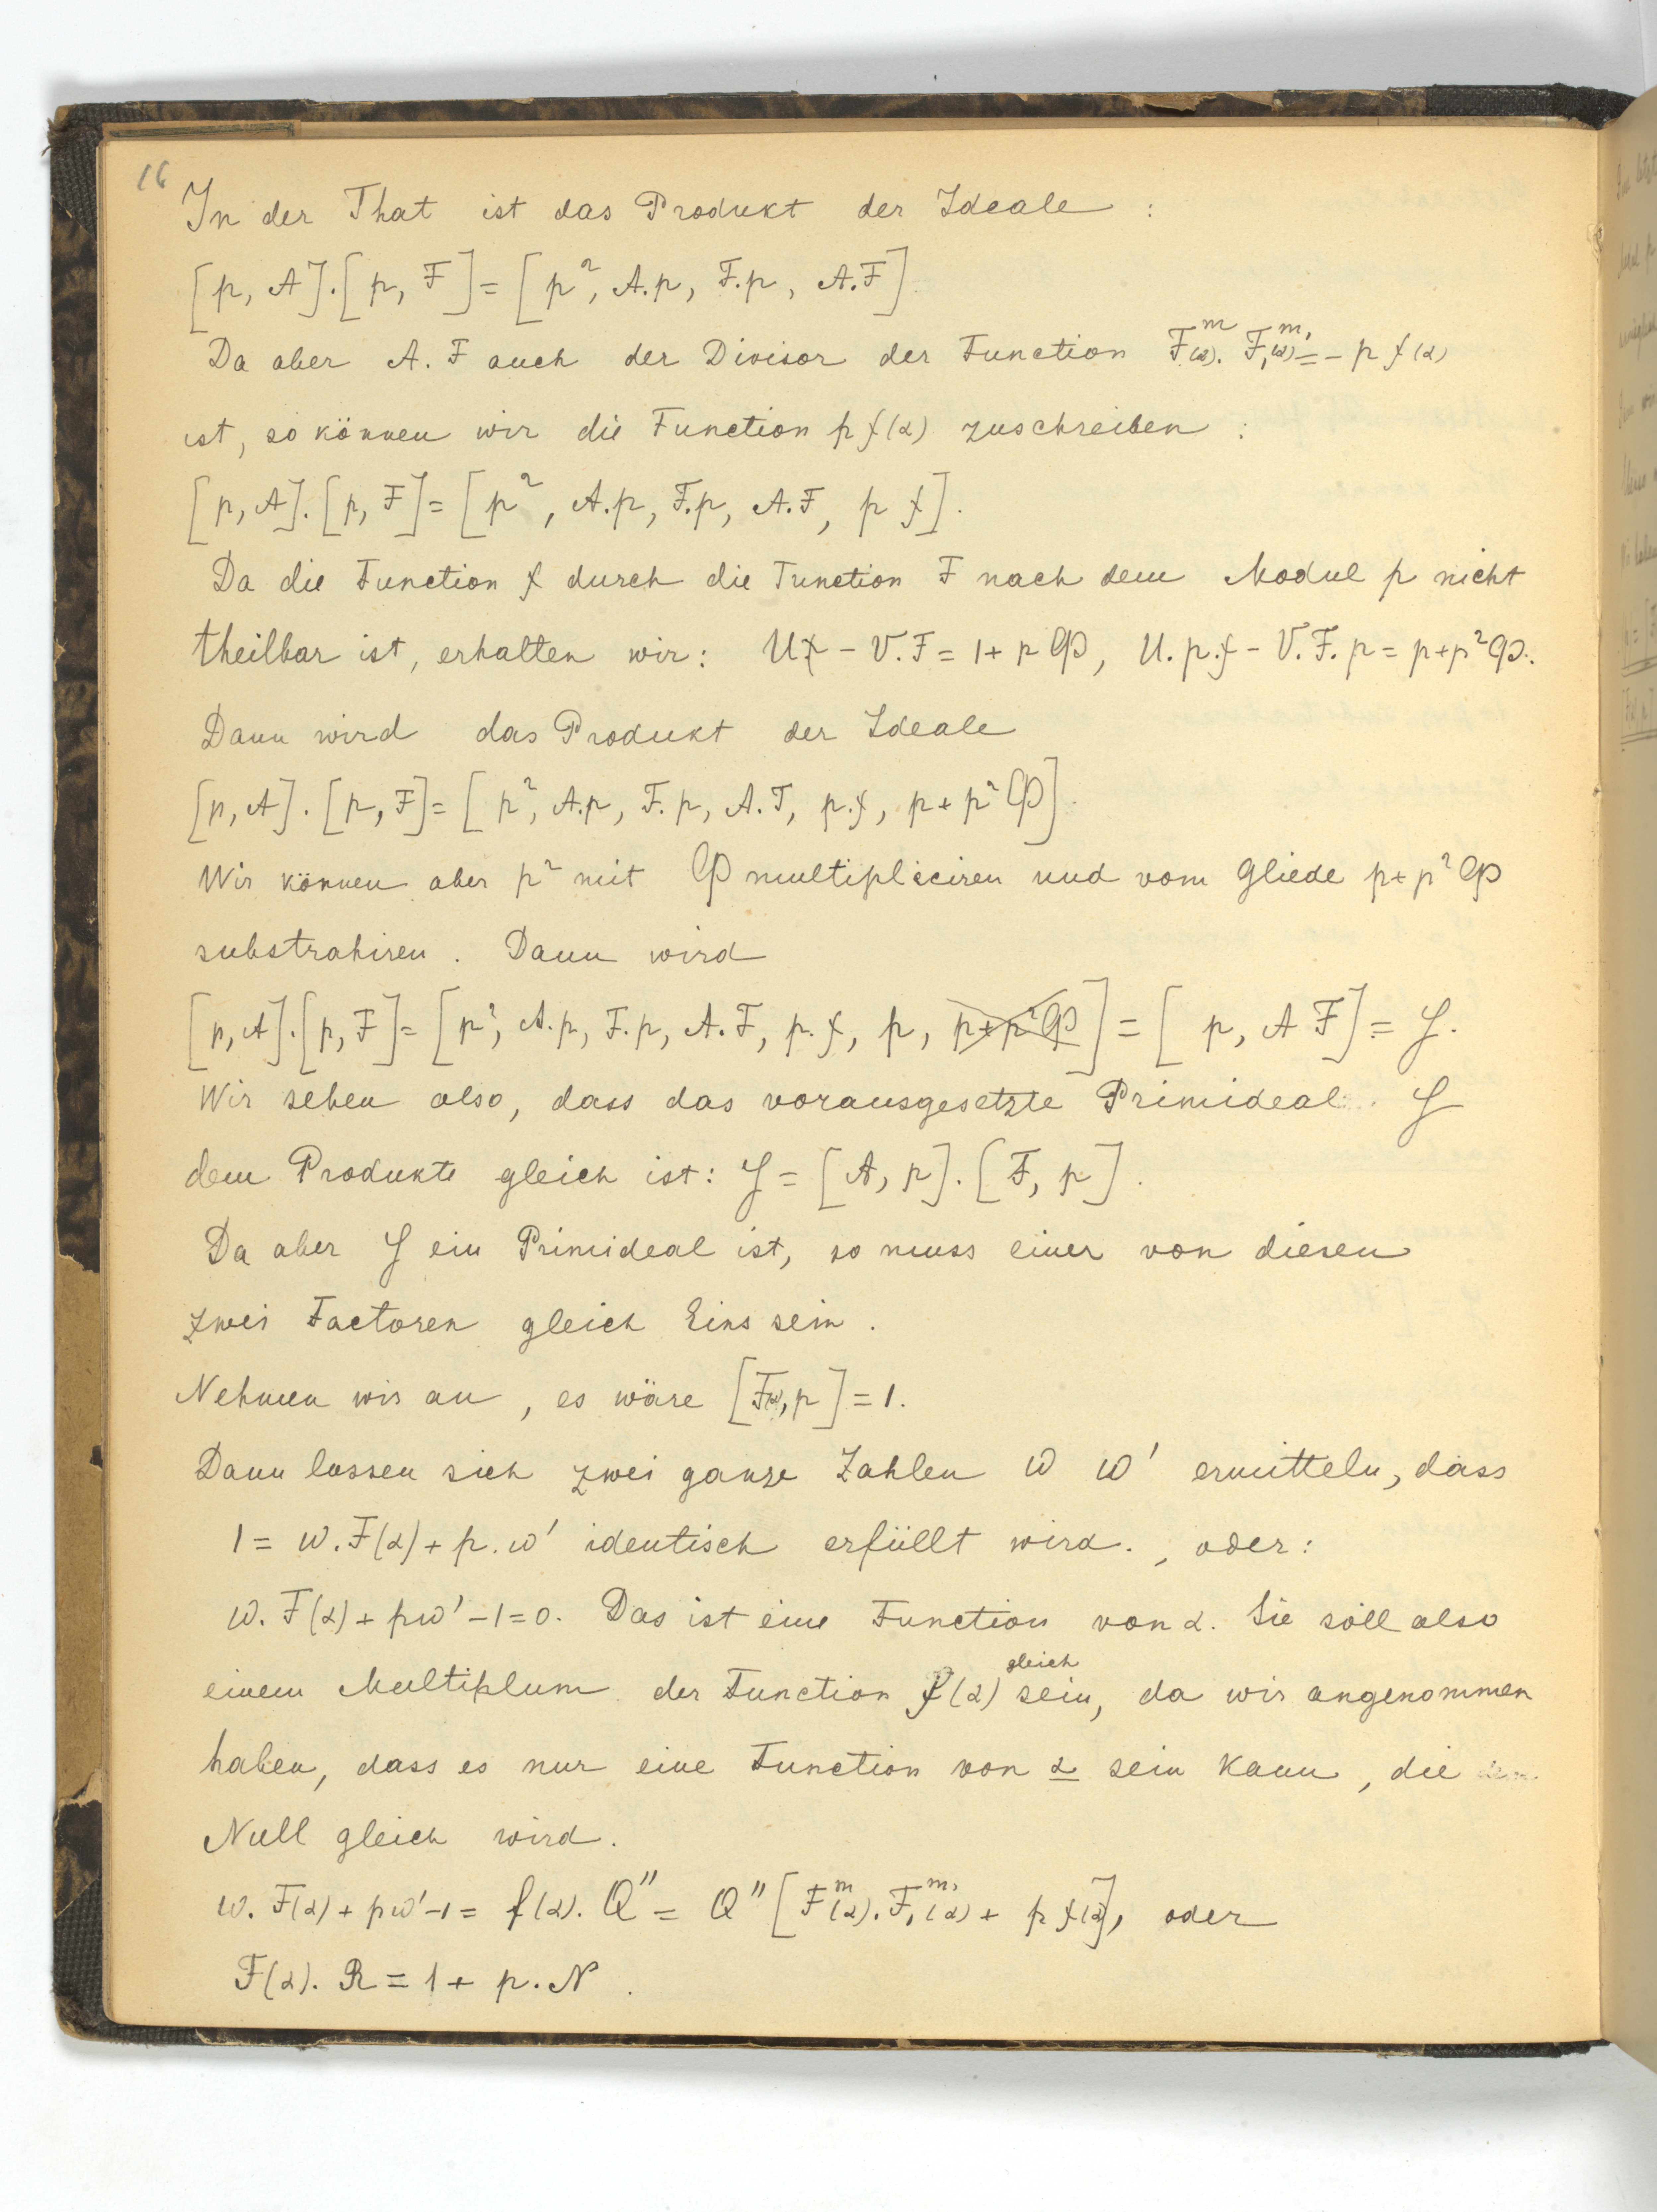 16
In der That ist das Produkt der Ideale :
[p, A].[p, F] = [p², A.p, F.p, A.F]
Da aber A.F auch der Divisor der Function F^m(α). F₁^m₁(α) = - p f(α)
ist, so können wir die Function p f(α) zuschreiben :
[p, A].[p, F] = [p², A.p, F.p, A.F, p f].
Da die Function f durch die Function F nach dem Modul p nicht
theilbar ist, erhalten wir: Uf - V.F = 1 + p φ, U.p.f - V.F.p = p + p²φ.
Dann wird das Produkt der Ideale
[p, A].[p, F] = [p², A.p, F.p, A.F, p.f, p + p²φ].
Wir können aber p² mit φ multipliciren und vom Gliede p + p²φ
substrahiren. Dann wird
[p, A].[p, F] = [p², A.p, F.p, A.F, p.f, p, p + p²φ] = [p, A F] = y.
Wir sehen also, dass das vorausgesetzte Primideal y
dem Produkte gleich ist: y = [A, p].[F, p].
Da aber y ein Primideal ist, so muss einer von diesen
zwei Factoren gleich Eins sein.
Nehmen wir an, es wäre [F(α), p] = 1.
Dann lassen sich zwei ganze Zahlen w w' ermitteln, dass
1 = w.F(α) + p.w' identisch erfüllt wird., oder:
w.F(α) + pw' - 1 = 0. Das ist eine Function von α. Sie soll also
einem Multiplum der Function f(α) gleich sein, da wir angenommen
haben, dass es nur eine Function von α sein kann, die
Null gleich wird.
w.F(α) + pw' - 1 = f(α).Q'' = Q'' [F^m(α).F₁^m₁(α) + p f(α)], oder
F(α).R = 1 + p.N.